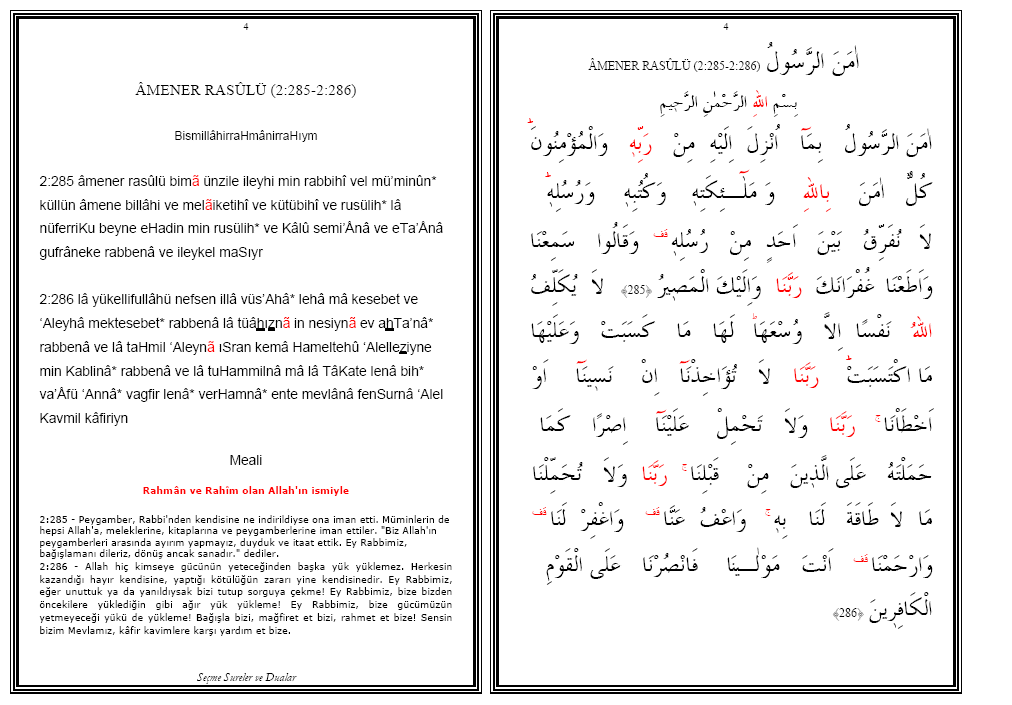 4
ÂMENER RASÛLÜ (2:285-2:286)
BismillâhirraHmânirraHıym
2:285 âmener rasûlü bimã ünzile ileyhi min rabbihî vel mü’minûn*
küllün âmene billâhi ve melãiketihî ve kütübihî ve rusülih* lâ
nüferriKu beyne eHadin min rusülih* ve Kâlû semi’Ânâ ve eTa’Ânâ
gufrâneke rabbenâ ve ileykel maSıyr
2:286 lâ yükellifullâhü nefsen illâ vüs’Ahâ* lehâ mâ kesebet ve
‘Aleyhâ mektesebet* rabbenâ lâ tüâhıznã in nesiynã ev ahTa’nâ*
rabbenâ ve lâ taHmil ‘Aleynã ıSran kemâ Hameltehû ‘Alelleziyne
min Kablinâ* rabbenâ ve lâ tuHammilnâ mâ lâ TâKate lenâ bih*
va’Âfü ‘Annâ* vagfir lenâ* verHamnâ* ente mevlânâ fenSurnâ ‘Alel
Kavmil kâfiriyn
Meali
Rahmân ve Rahîm olan Allah'ın ismiyle
2:285 - Peygamber, Rabbi'nden kendisine ne indirildiyse ona iman etti. Müminlerin de
hepsi Allah'a, meleklerine, kitaplarına ve peygamberlerine iman ettiler. "Biz Allah'ın
peygamberleri arasında ayırım yapmayız, duyduk ve itaat ettik. Ey Rabbimiz,
bağışlamanı dileriz, dönüş ancak sanadır." dediler.
2:286 - Allah hiç kimseye gücünün yeteceğinden başka yük yüklemez. Herkesin
kazandığı hayır kendisine, yaptığı kötülüğün zararı yine kendisinedir. Ey Rabbimiz,
eğer unuttuk ya da yanıldıysak bizi tutup sorguya çekme! Ey Rabbimiz, bize bizden
öncekilere yüklediğin gibi ağır yük yükleme! Ey Rabbimiz, bize gücümüzün
yetmeyeceği yükü de yükleme! Bağışla bizi, mağfiret et bizi, rahmet et bize! Sensin
bizim Mevlamız, kâfir kavimlere karşı yardım et bize.
Seçme Sureler ve Dualar
4
ÂMENER RASÛLÜ (2:285-2:286) اٰمَنَ الرَّسُولُ
بِسْمِ اللهِ الرَّحْمٰنِ الرَّحٖيمِ
اٰمَنَ الرَّسُولُ بِمَٓا اُنْزِلَ اِلَيْهِ مِنْ رَبِّهٖ وَالْمُؤْمِنُونَؕ
كُلٌّ اٰمَنَ بِاللهِ وَ مَلٰٓـئِكَتِهٖ وَكُتُبِهٖ وَرُسُلِهٖؕ
لَا نُفَرِّقُ بَيْنَ اَحَدٍ مِنْ رُسُلِهٖ قف وَقَالُوا سَمِعْنَا
وَاَطَعْنَا غُفْرَانَكَ رَبَّنَا وَاِلَيْكَ الْمَصٖيرُ ﴿285﴾ لَا يُكَلِّفُ
اللهُ نَفْسًا اِلَّا وُسْعَهَاؕ لَهَا مَا كَسَبَتْ وَعَلَيْهَا
مَا اكْتَسَبَتْؕ رَبَّنَا لَا تُؤَاخِذْنَٓا اِنْ نَسٖينَٓا اَوْ
اَخْطَاْنَاۚ رَبَّنَا وَلَا تَحْمِلْ عَلَيْنَٓا اِصْرًا كَمَا
حَمَلْتَهُ عَلَى الَّذٖينَ مِنْ قَبْلِنَاۚ رَبَّنَا وَلَا تُحَمِّلْنَا
مَا لَا طَاقَةَ لَنَا بِهٖۚ وَاعْفُ عَنَّا قف وَاغْفِرْ لَنَا قف
وَارْحَمْنَا قف اَنْتَ مَوْلٰـينَا فَانْصُرْنَا عَلَى الْقَوْمِ
الْكَافِرٖينَ ﴿286﴾